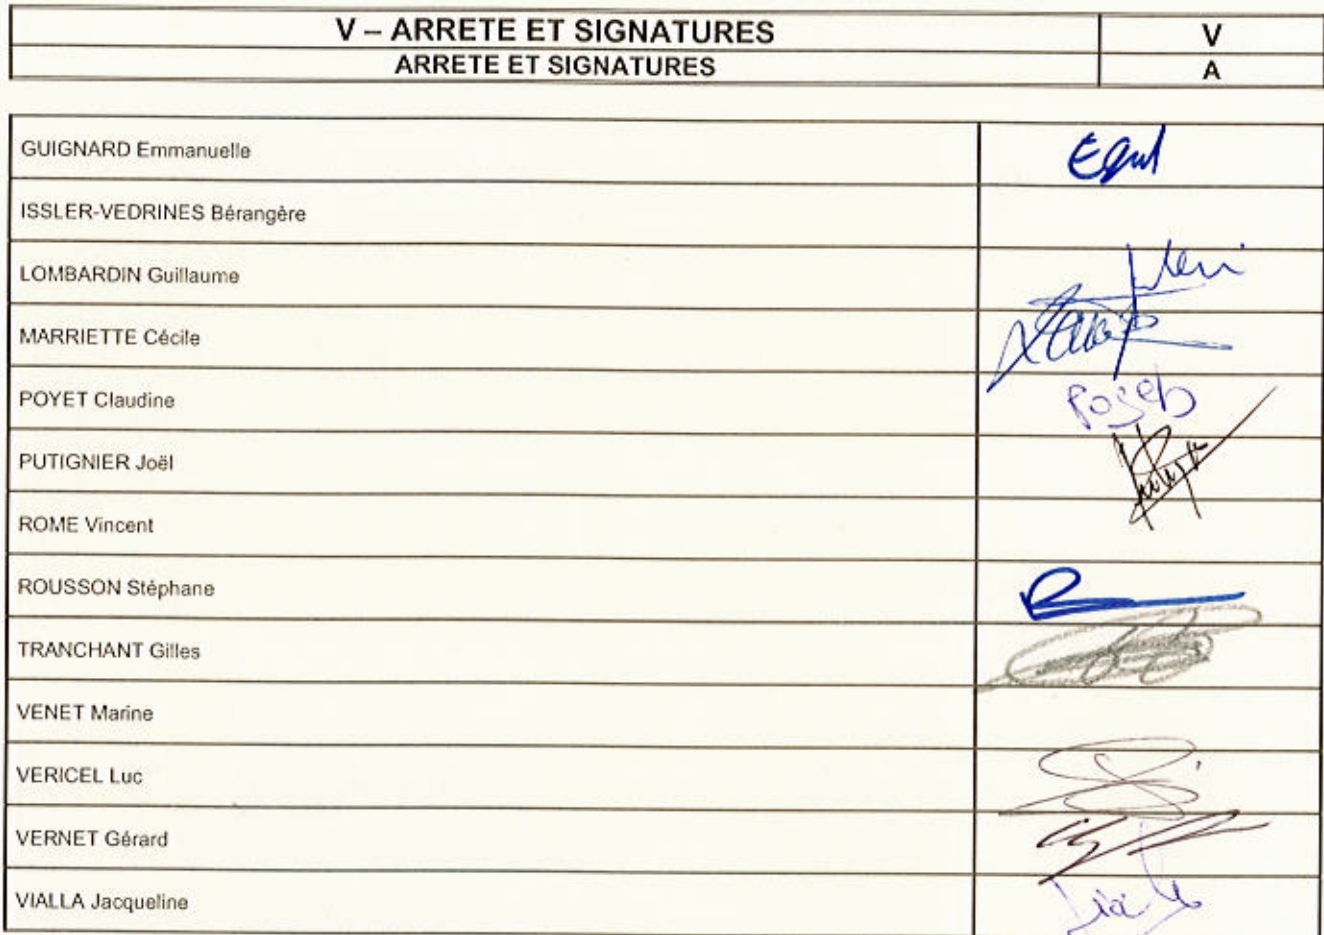 V – ARRETE ET SIGNATURES V
ARRETE ET SIGNATURES A
GUIGNARD Emmanuelle
ISSLER-VEDRINES Bérangère
LOMBARDIN Guillaume
MARRIETTE Cécile
POYET Claudine
PUTIGNIER Joël
ROME Vincent
ROUSSON Stéphane
TRANCHANT Gilles
VENET Marine
VERICEL Luc
VERNET Gérard
VIALLA Jacqueline